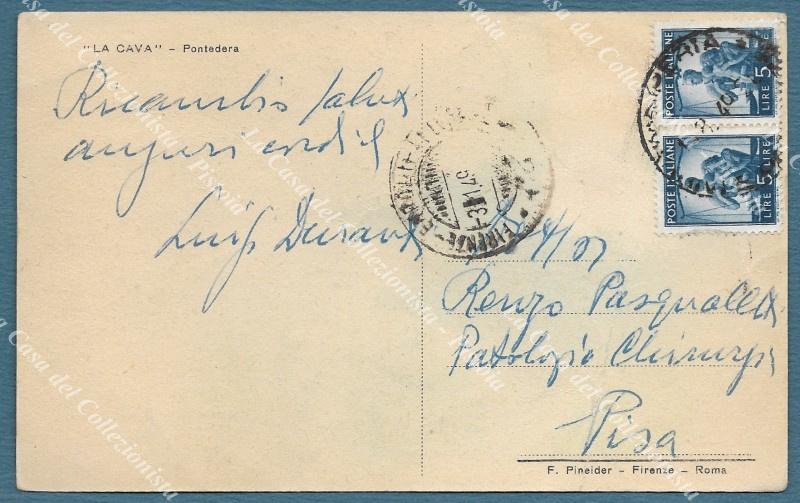 "LA CAVA" - Pontedera
Ricambio saluti
auguri cordiali
Luigi Durant
POSTE ITALIANE
LIRE 5
POSTE ITALIANE
LIRE 5
FIRENZE - EMPOLI
Renzo Pasqualetti
Patologia Chirurgica
Pisa
F. Pineider - Firenze - Roma
La Casa del Collezionista - Pistoia